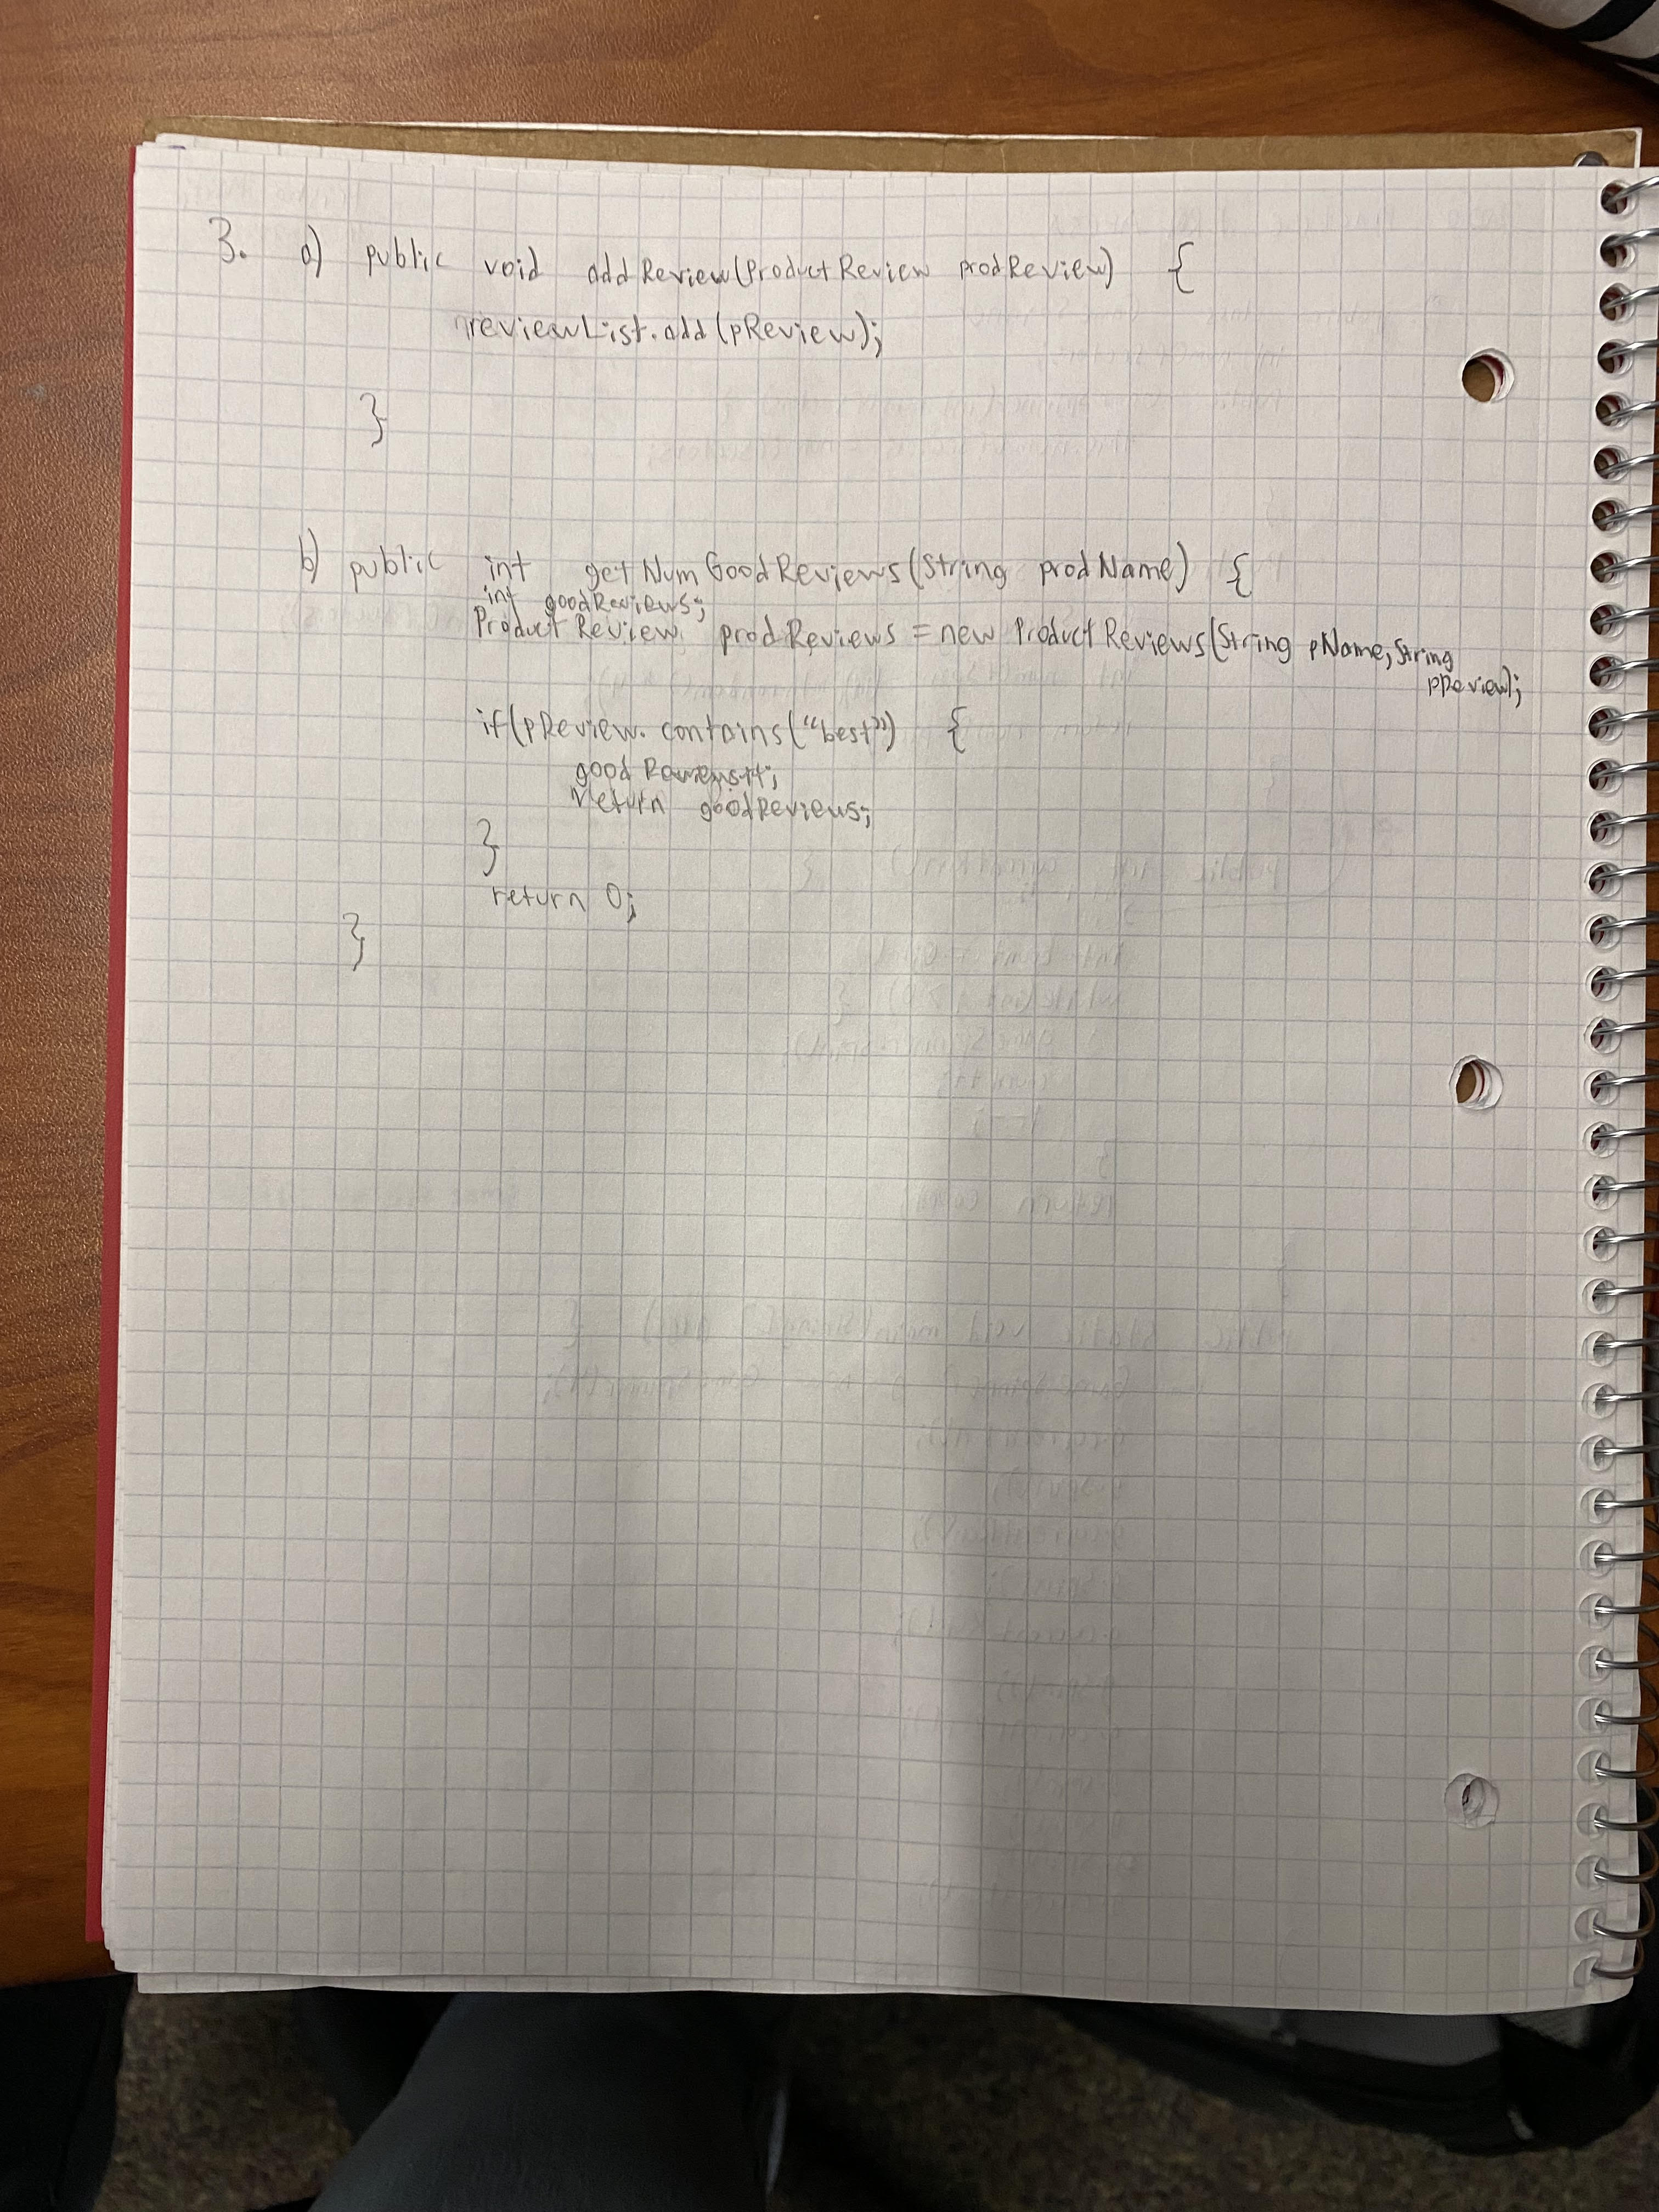 3. a) public void addReview(ProductReview prodReview) {
reviewList.add(pReview);
}
b) public int getNumGoodReviews(String prodName) {
int goodReviews;
ProductReview prodReviews = new ProductReviews(String pName, String
pReview);
if(pReview.contains("best") {
goodReviews++;
return goodReviews;
}
return 0;
}